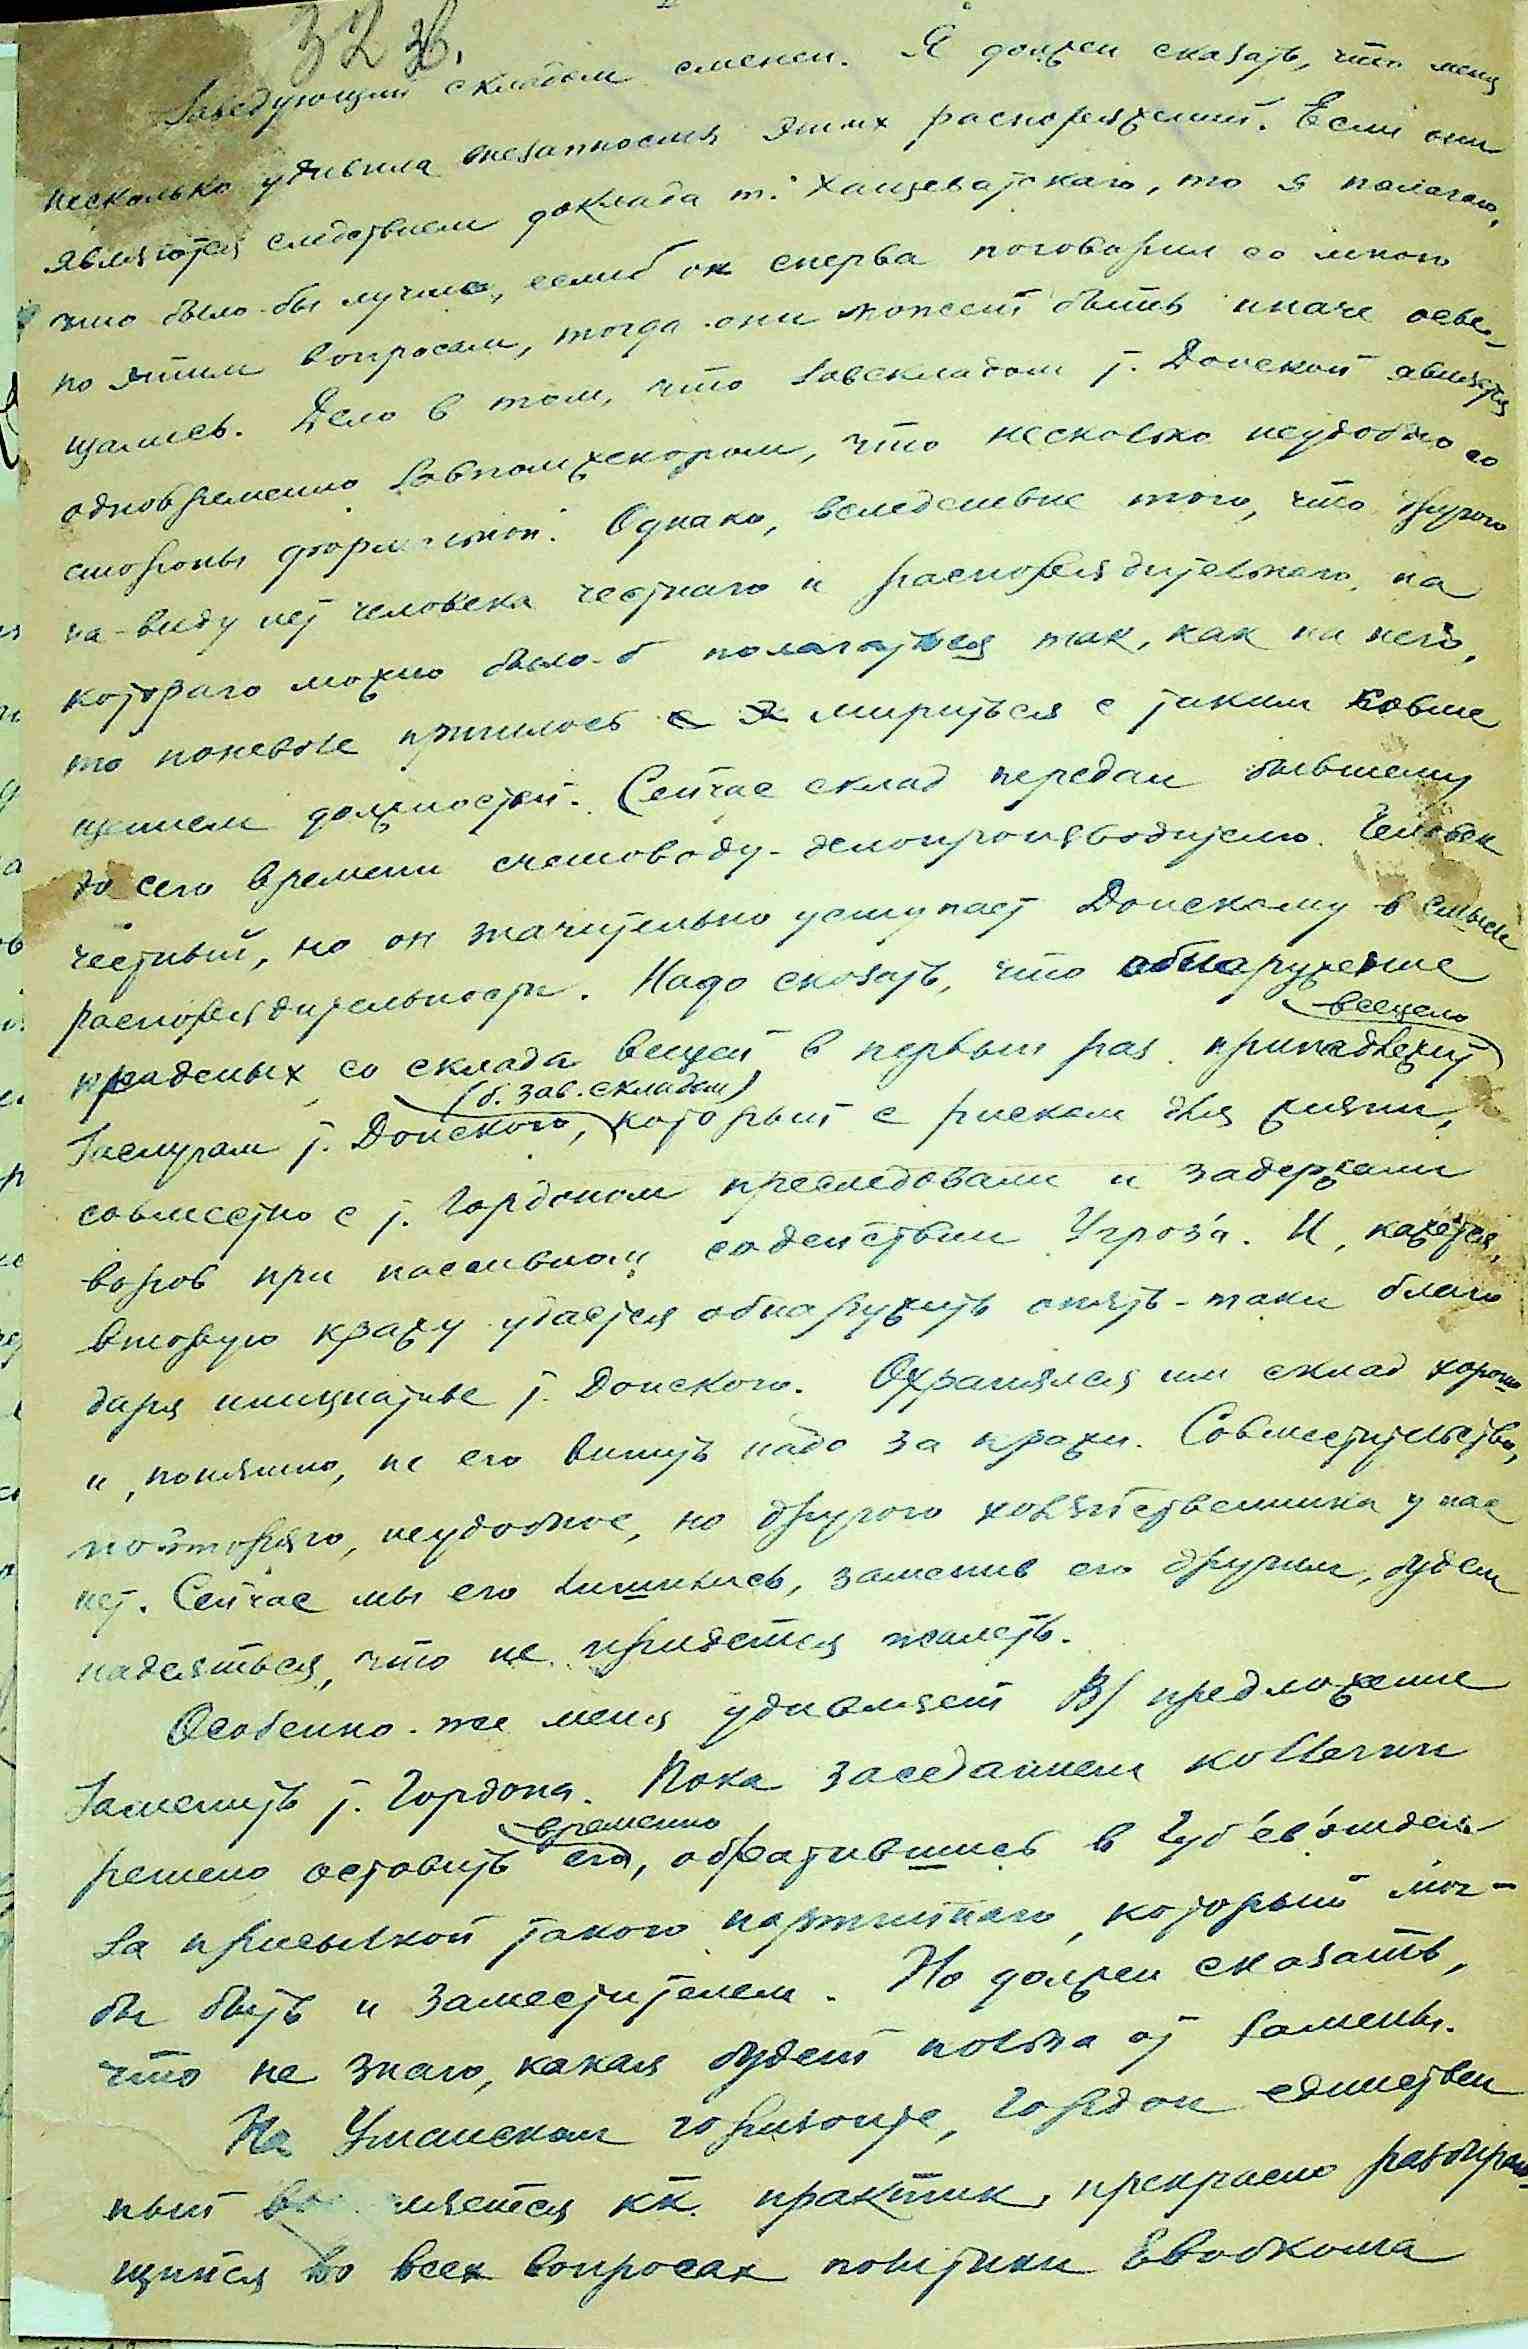 32 зв.
Заведующий складом сменен. Я должен сказать, что меня
несколько удивила внезапность этих распоряжений. Если они
являются следствием доклада т. Хащеватскаго, то я полагаю,
что было-бы лучше, еслиб он сперва поговорил со мною
по этим вопросам, тогда они может быть иначе осве-
щались. Дело в том, что завскладом т. Донской является
одновременно завпомхскором, что несколько неудобно со
стороны формальной. Однако, вследствие того, что другого
на-виду нет человека честнаго и распорядительнаго, на
котораго можно было-б полагаться так, как на него,
то поневоле пришлось мириться с таким совме
щением должностей. Сейчас склад передан бывшему
до сего времени счетоводу-делопроизводителю. Человек
честный, но он значительно уступает Донскому в смысле
распорядительности. Надо сказать, что обнаружение
всецело
краденых со склада вещей в первый раз принадлежит
(б. зав. складом)
заслугам т. Донского, который с риском для жизни,
совместно с т. Гордоном преследовали и задержали
воров при пассивном содействии Угроз'а. И, кажется,
вторую кражу удастся обнаружить опять-таки благо
даря инициативе т. Донского. Охранялся им склад хорошо
и, понятно, не его винить надо за кражи. Совместительство,
повторяю, неудобное, но другого хозяйственника у нас
нет. Сейчас мы его лишились, заменив его другим, будем
надеяться, что не придется жалеть.
Особенно-же меня удивляет В/ предложение
заменить т. Гордона. Пока заседанием коллегии
временно
решено оставить его, обратившись в Губ'ев'отдел
за присылкой такого партийнаго, который мог-
бы быть и заместителем. Но должен сказать,
что не знаю, какая будет польза от замены.
На Уманском горизонте, Гордон единствен
ный является кк. практик, прекрасно разбираю-
щийся во всех вопросах политики Евобкома